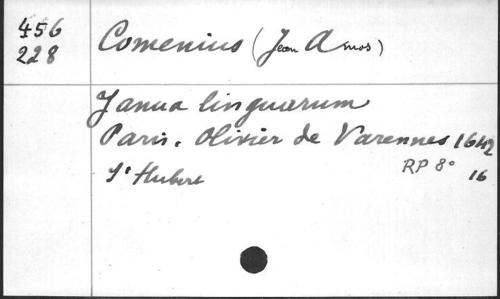 456
228
Comenius (Jean Amos)
Janua linguarum
Paris. Olivier de Varennes 1642
St Hubert
RP 8°
16